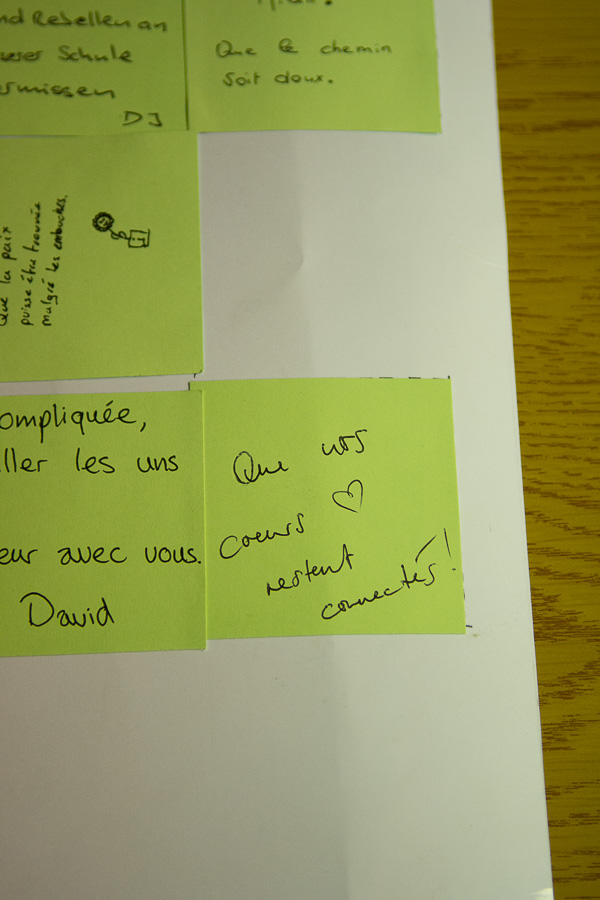 nd Rebellen an
serer Schule
rmissen
DJ
Que le chemin
soit doux.
Que la paix
puisse être trouvée
malgré les embûches.
ompliquée,
ller les uns
eur avec vous.
David
Que nos
coeurs ♡
restent
connectés!